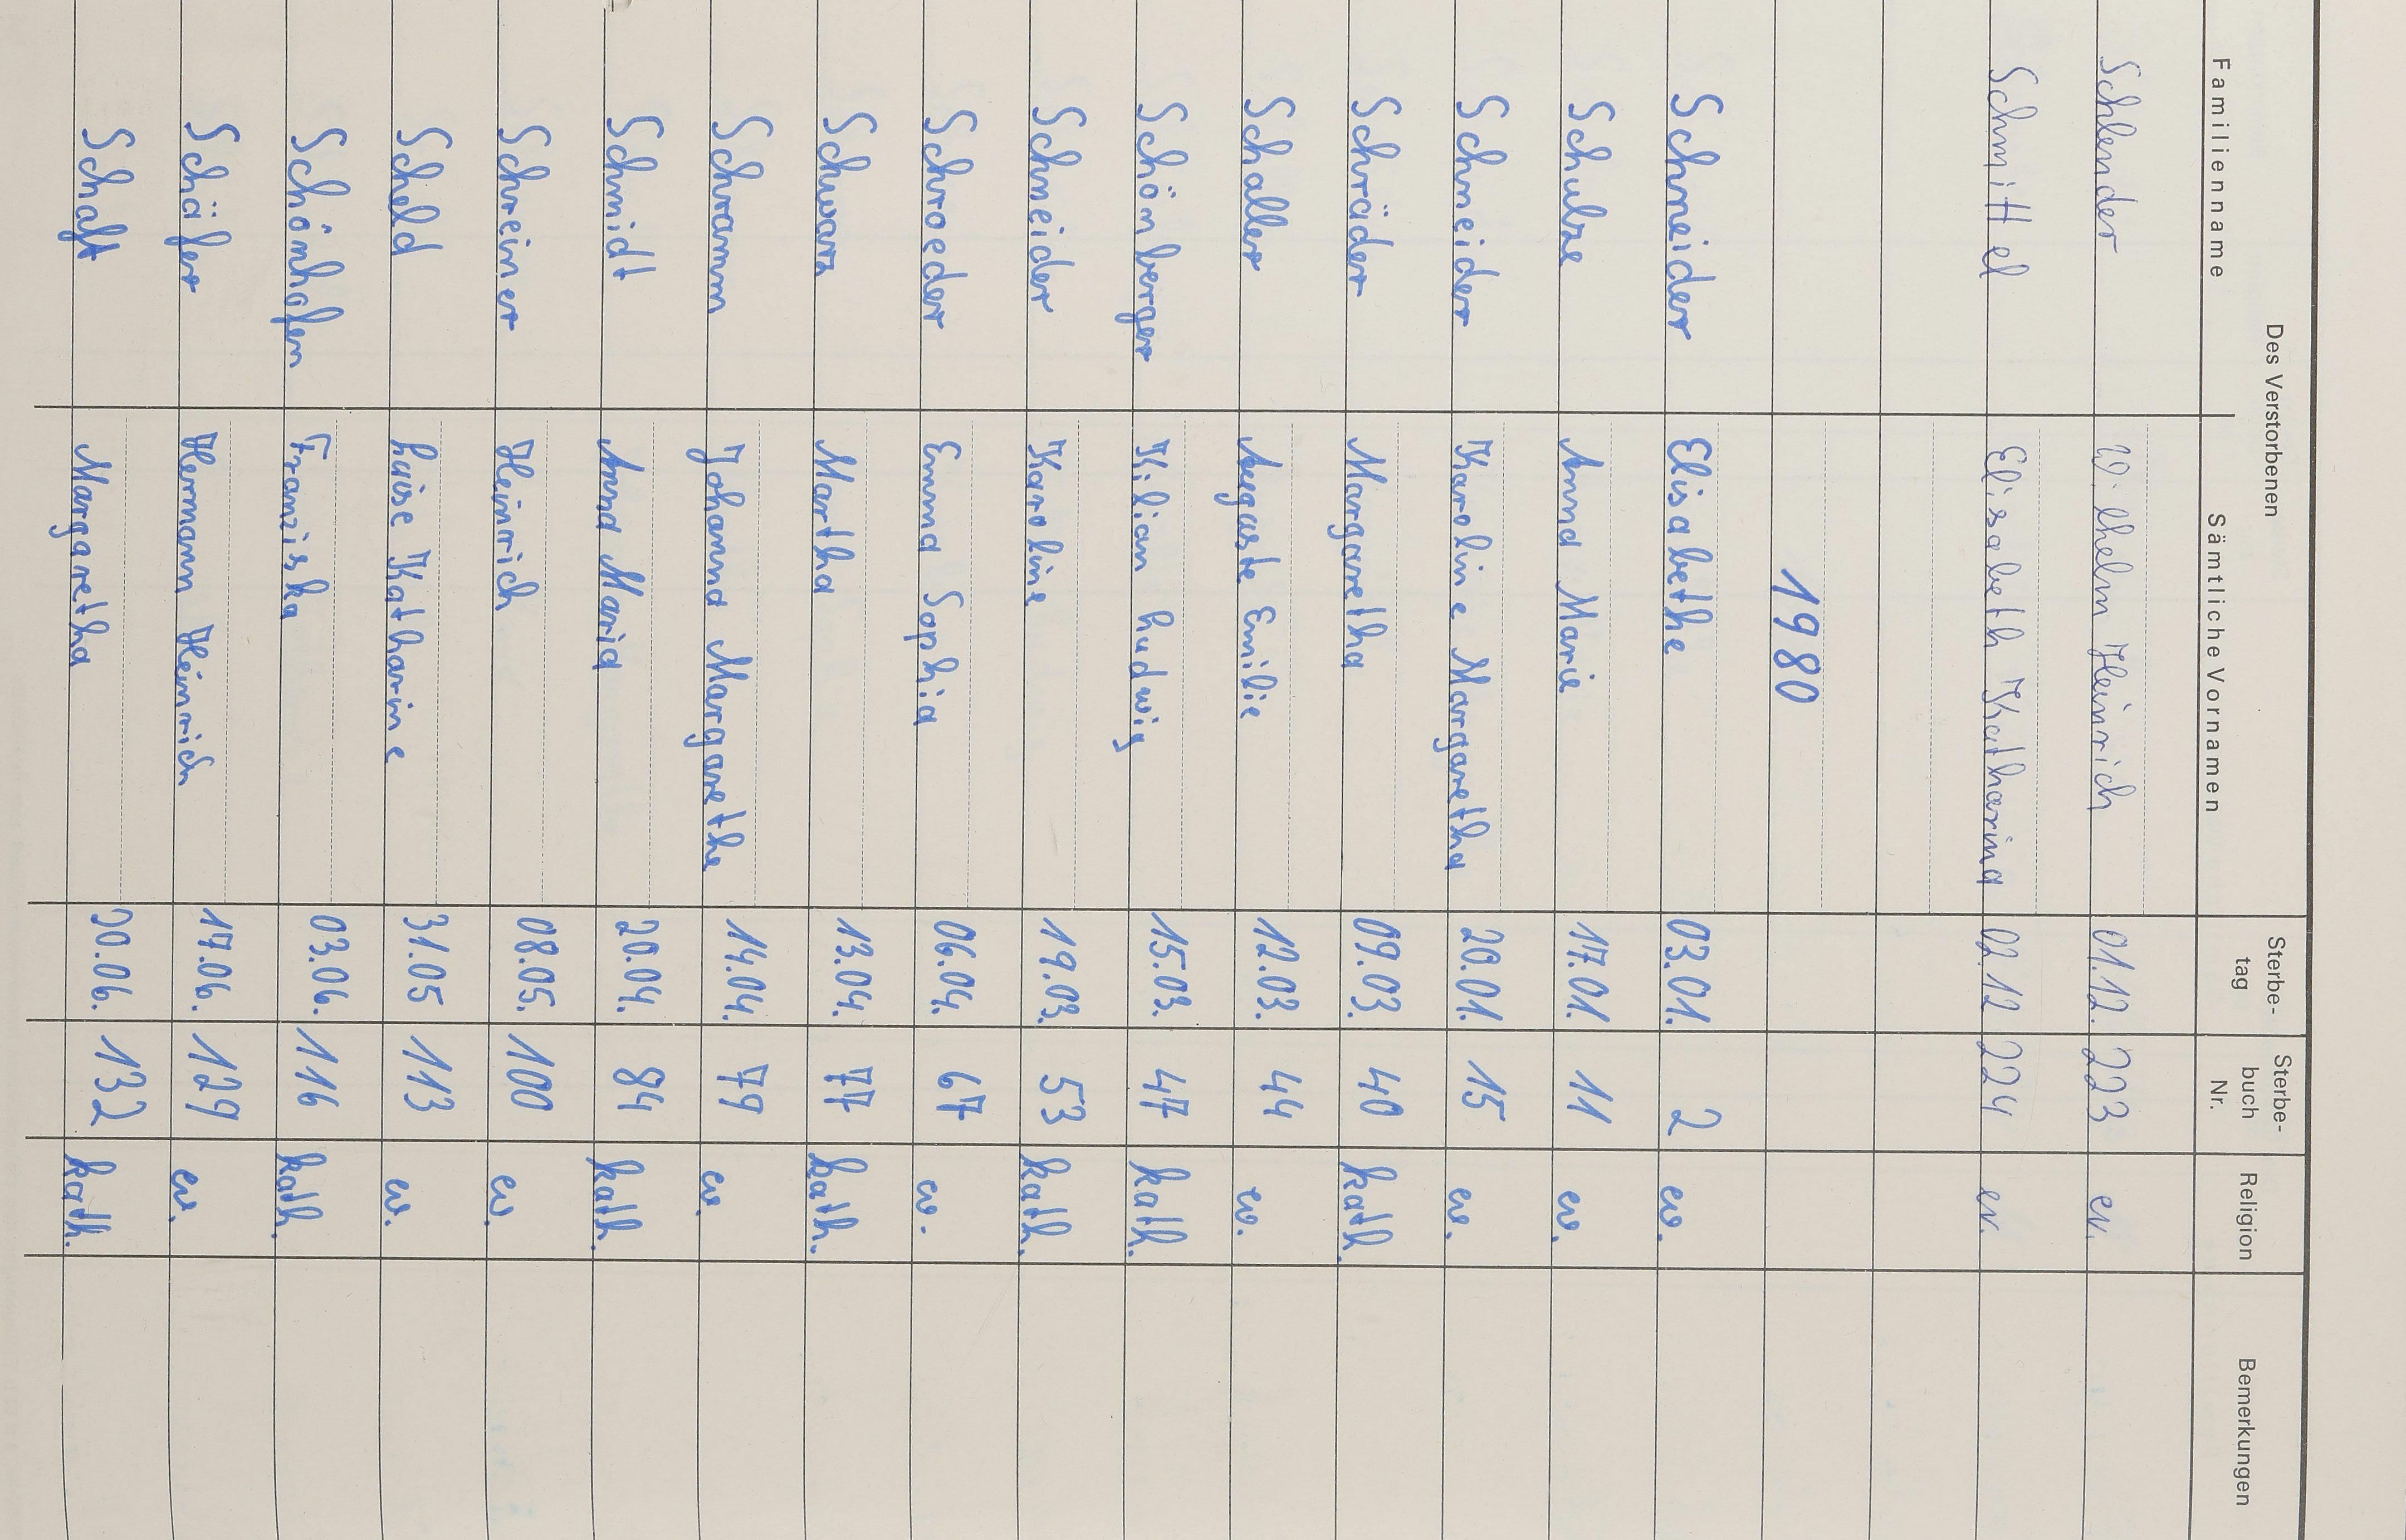 Des Verstorbenen
Familienname Sämtliche Vornamen Sterbe-tag Sterbe-buch Nr. Religion Bemerkungen
Schlender Wilhelm Heinrich 01.12. 223 ev.
Schmittel Elisabeth Katharina 02.12 224 ev.
1980
Schneider Elisabethe 03.01. 2 ev.
Schulze Anna Marie 17.01. 11 ev.
Schneider Karoline Margaretha 20.01. 15 ev.
Schräder Margaretha 09.03. 40 kath.
Schaller Auguste Emilie 12.03. 44 ev.
Schönberger Kilian Ludwig 15.03. 47 kath.
Schneider Karoline 19.03. 53 kath.
Schroeder Emma Sophia 06.04. 67 ev.
Schwarz Martha 13.04. 77 kath.
Schramm Johanna Margarethe 14.04. 79 ev.
Schmidt Anna Maria 20.04. 84 kath.
Schreiner Heinrich 08.05. 100 ev.
Scheld Luise Katharine 31.05 113 ev.
Schönhofen Franziska 03.06. 116 kath.
Schäfer Hermann Heinrich 17.06. 129 ev.
Schaft Margaretha 20.06. 132 kath.